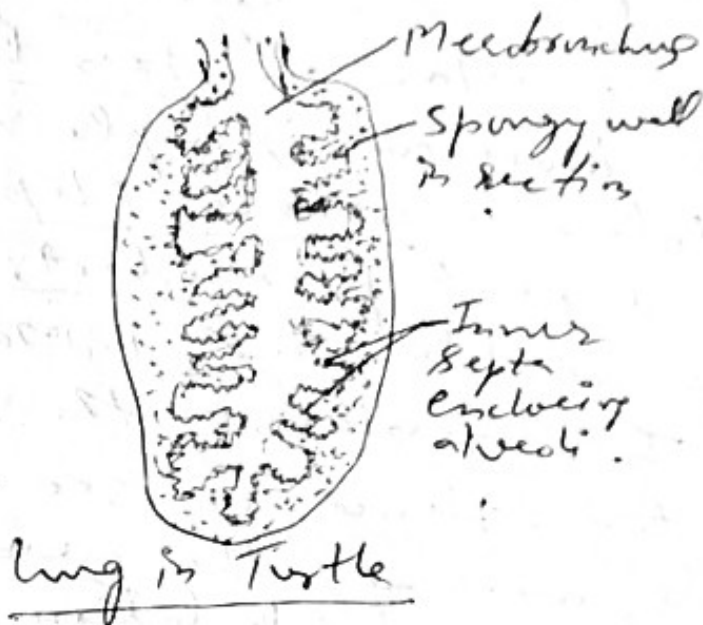 Mesobronchus
Spongy wall
in section
Inner
septa
enclosing
alveoli.
Lung in Turtle